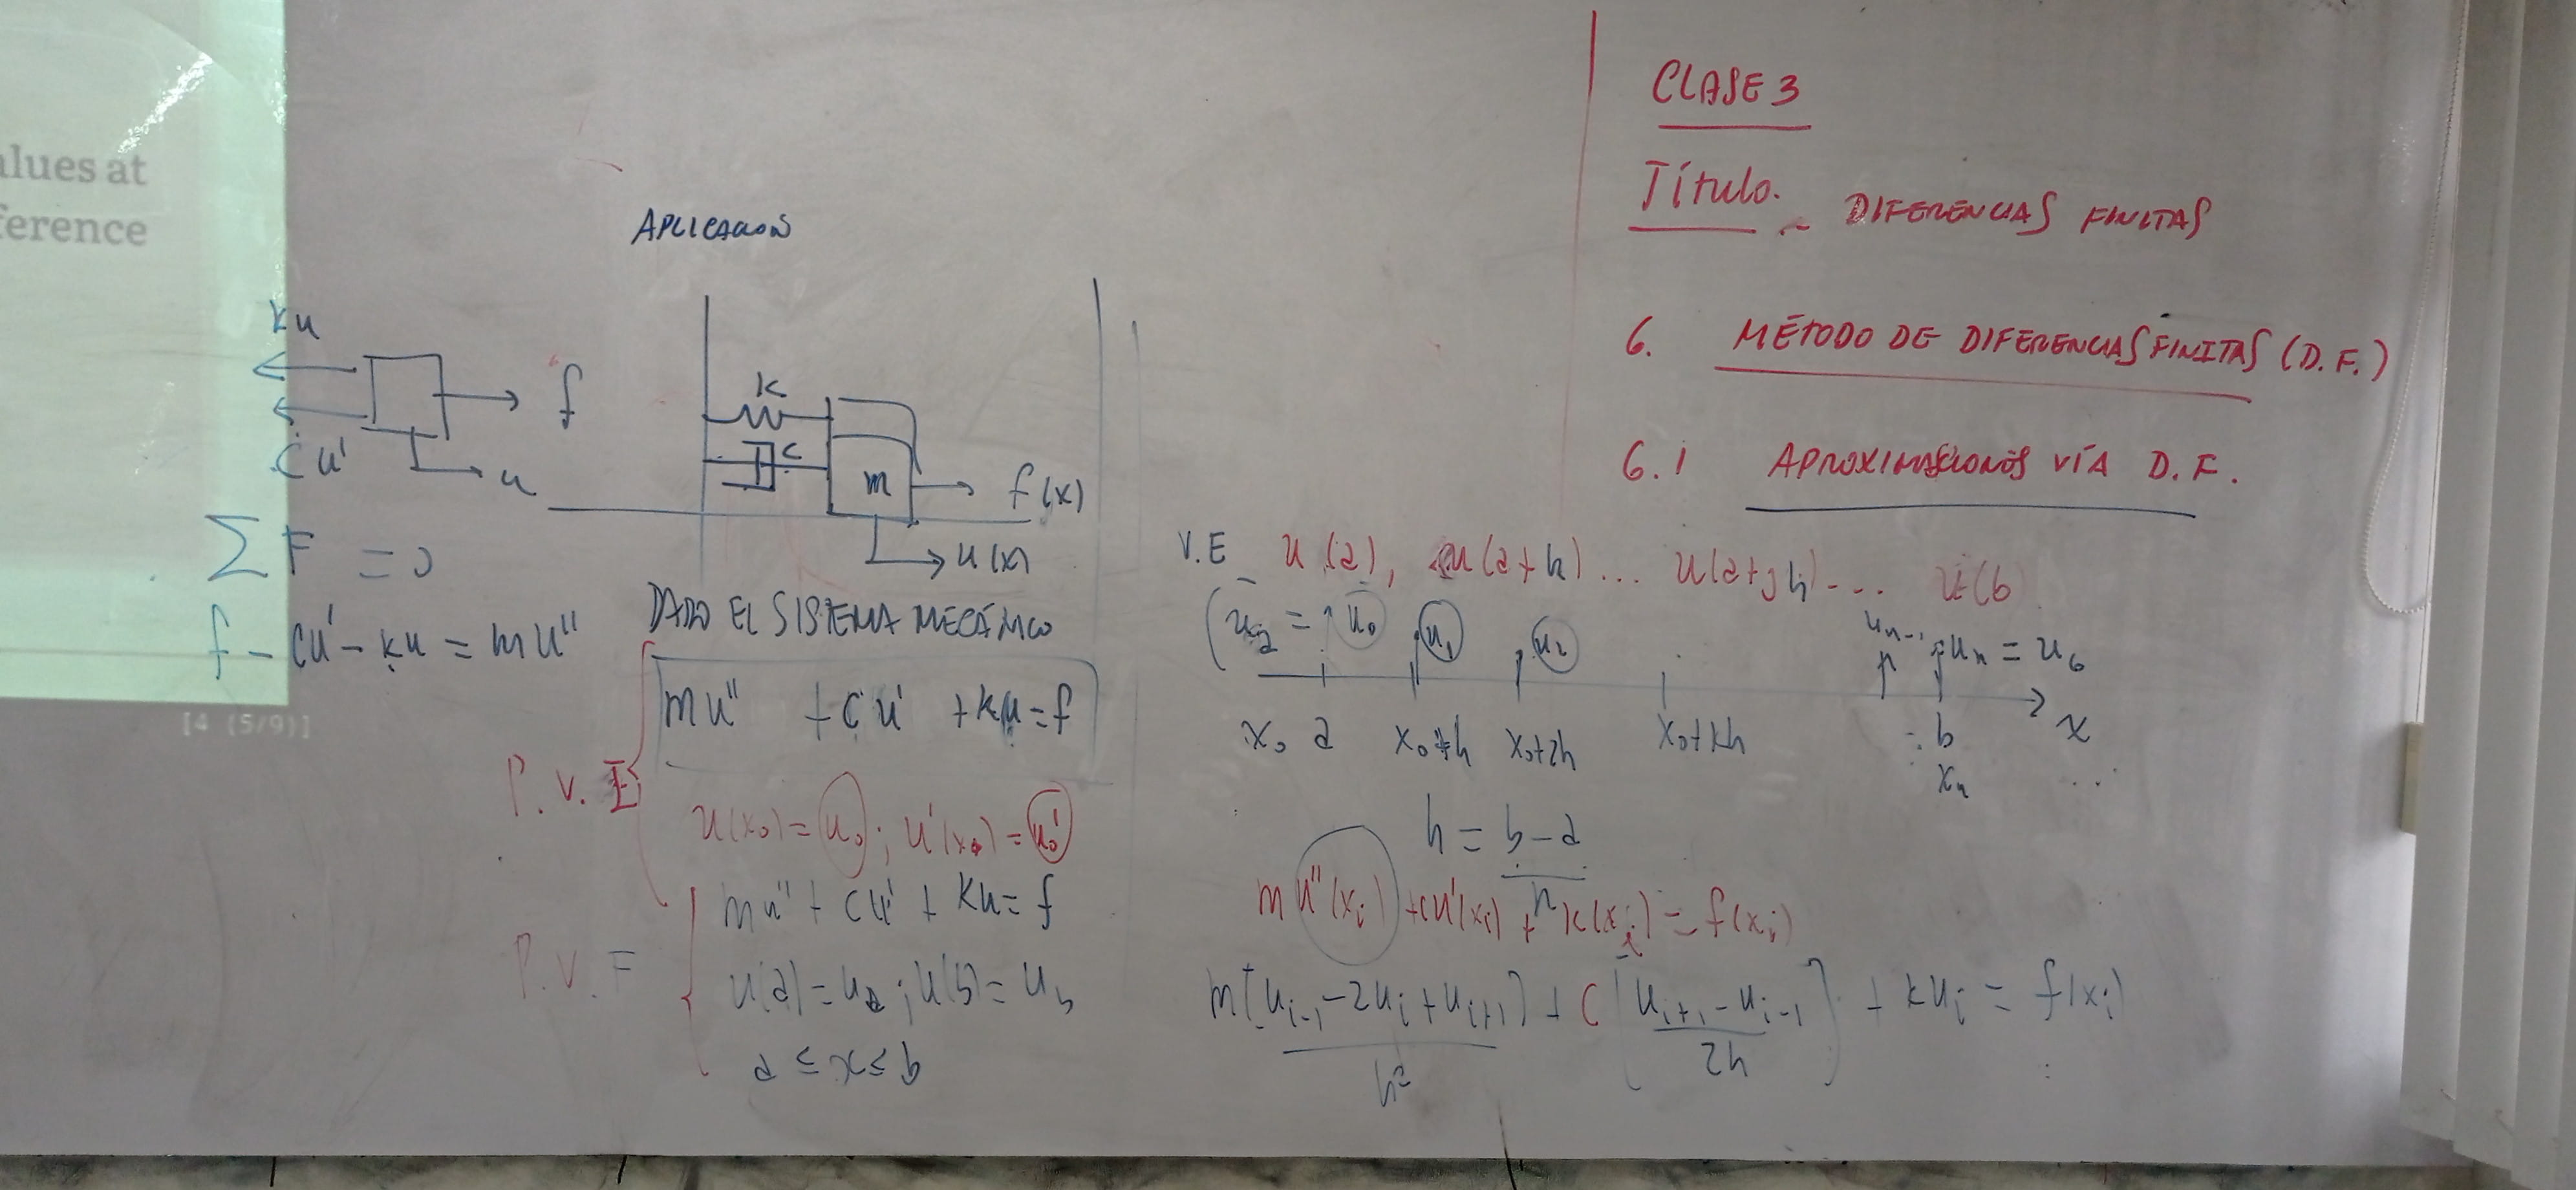 alues at
ference
[4 (5/9)]
APLICACION
ku
f
cu'
u
ΣF = 0
f - cu' - ku = mu''
k
c
m
f(x)
u(x)
DADO EL SISTEMA MECÁNICO
mu'' + cu' + ku = f
P.V.I
u(x₀) = u₀ ; u'(x₀) = u₀'
P.V.F
mu'' + cu' + ku = f
u(a) = uₐ ; u(b) = u_b
a ≤ x ≤ b
CLASE 3
Título. - DIFERENCIAS FINITAS
6. MÉTODO DE DIFERENCIAS FINITAS (D.F.)
6.1 APROXIMACIONES VÍA D.F.
V.E u(a), u(a+h) ... u(a+jh) ... u(b)
(uₐ = u₀ u₁ u₂ uₙ₋₁ uₙ = u_b
x₀ a x₀+h x₀+2h x₀+kh b x
xₙ ...
h = (b-a)/n
mu''(xᵢ) + cu'(xᵢ) + k(xᵢ) = f(xᵢ)
m[uᵢ₋₁ - 2uᵢ + uᵢ₊₁]/h² + c[(uᵢ₊₁ - uᵢ₋₁)/2h] + kuᵢ = f(xᵢ)